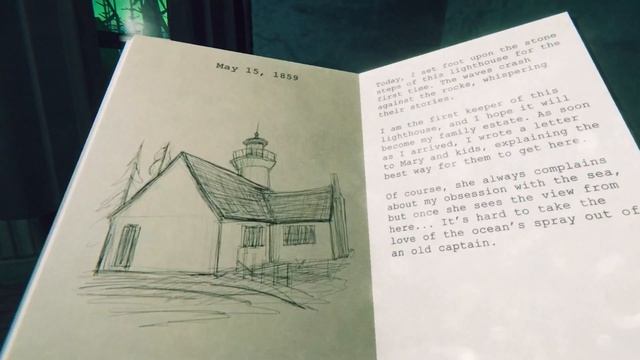 May 15, 1859
Today, I set foot upon the stone
steps of this lighthouse for the
first time. The waves crash
against the rocks, whispering
their stories.
I am the first keeper of this
lighthouse, and I hope it will
become my family estate. As soon
as I arrived, I wrote a letter
to Mary and kids, explaining the
best way for them to get here.
Of course, she always complains
about my obsession with the sea,
but once she sees the view from
here... It's hard to take the
love of the ocean's spray out of
an old captain.